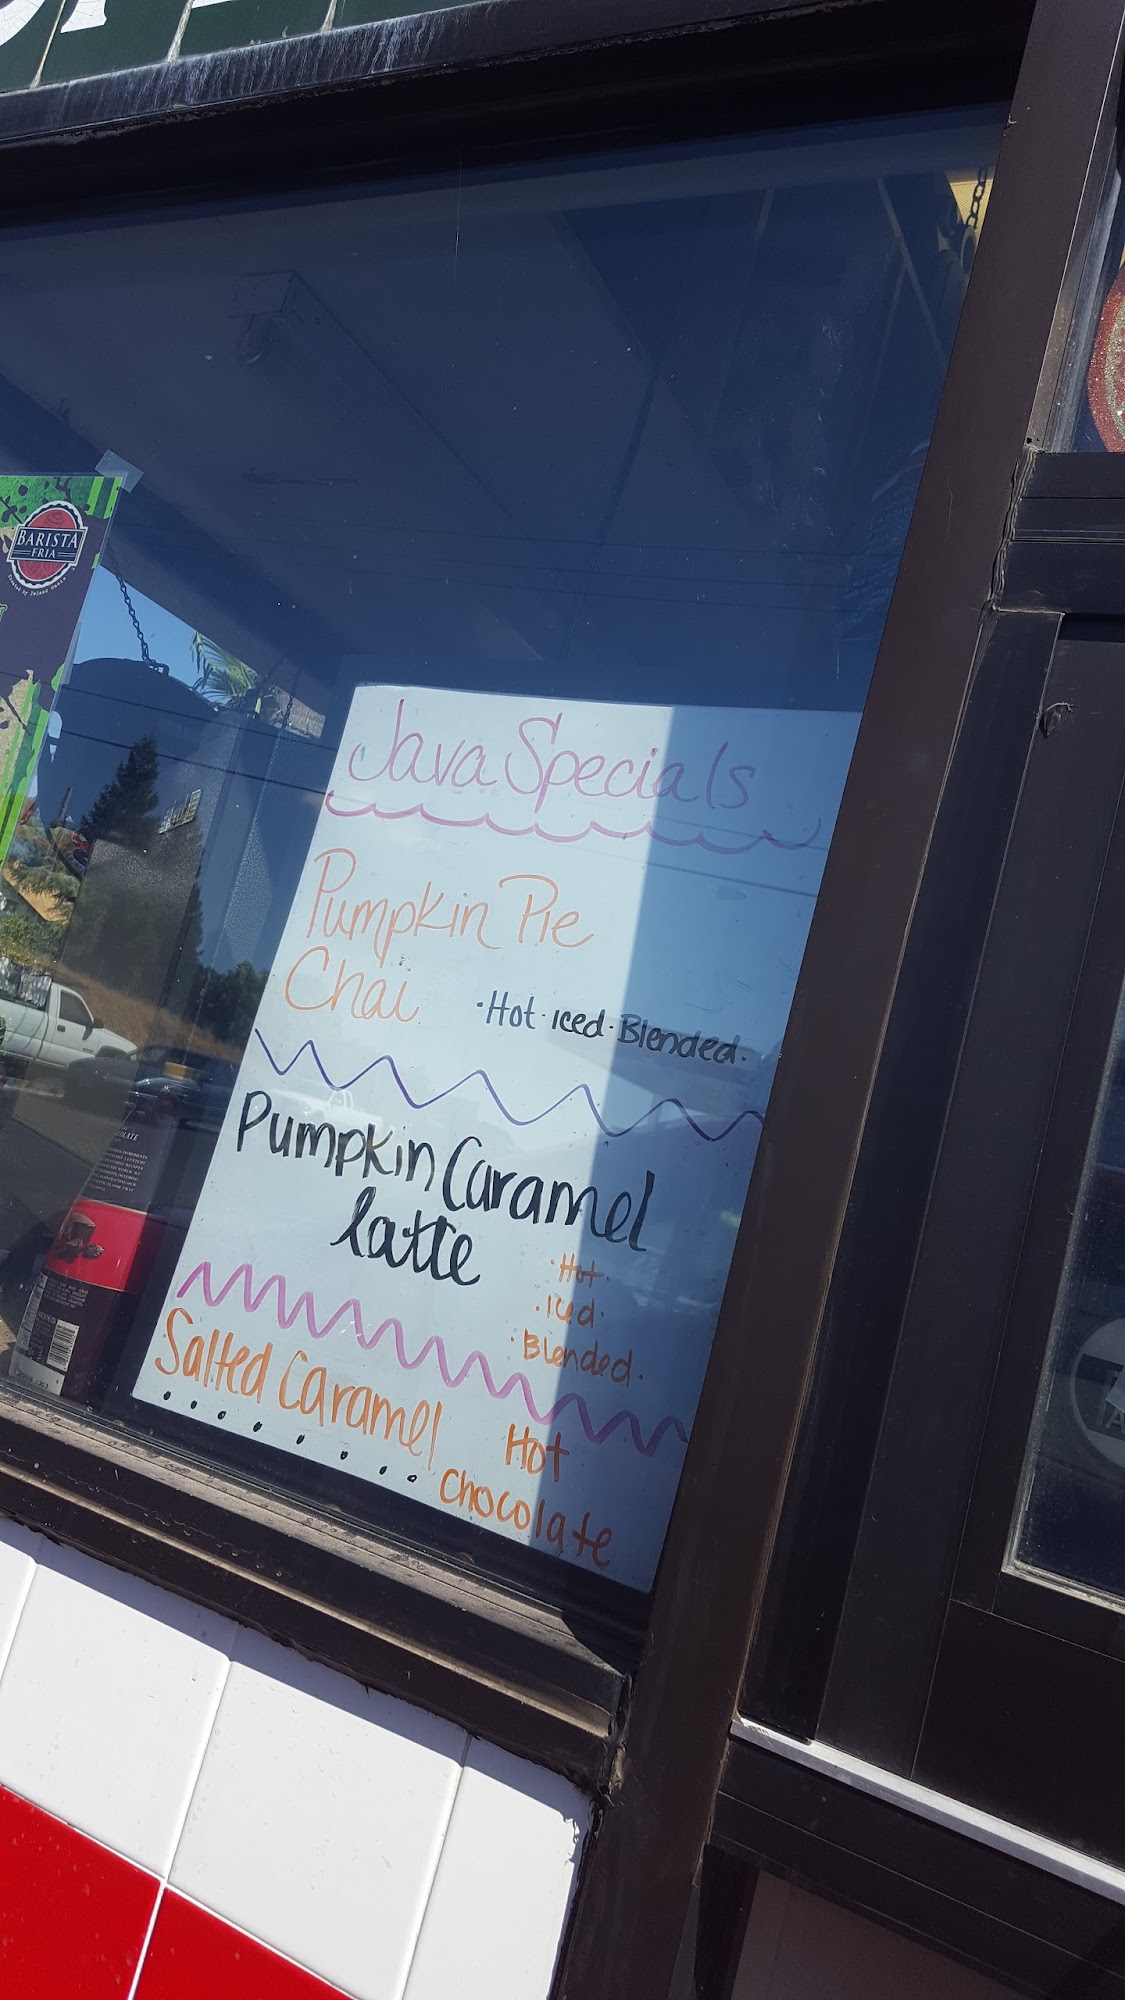 BARISTA
FRIA
Java Specials
Pumpkin Pie
Chai
·Hot·iced·Blended·
Pumpkin Caramel
latte
·Hot·
·iced·
·Blended·
Salted Caramel
Hot
Chocolate